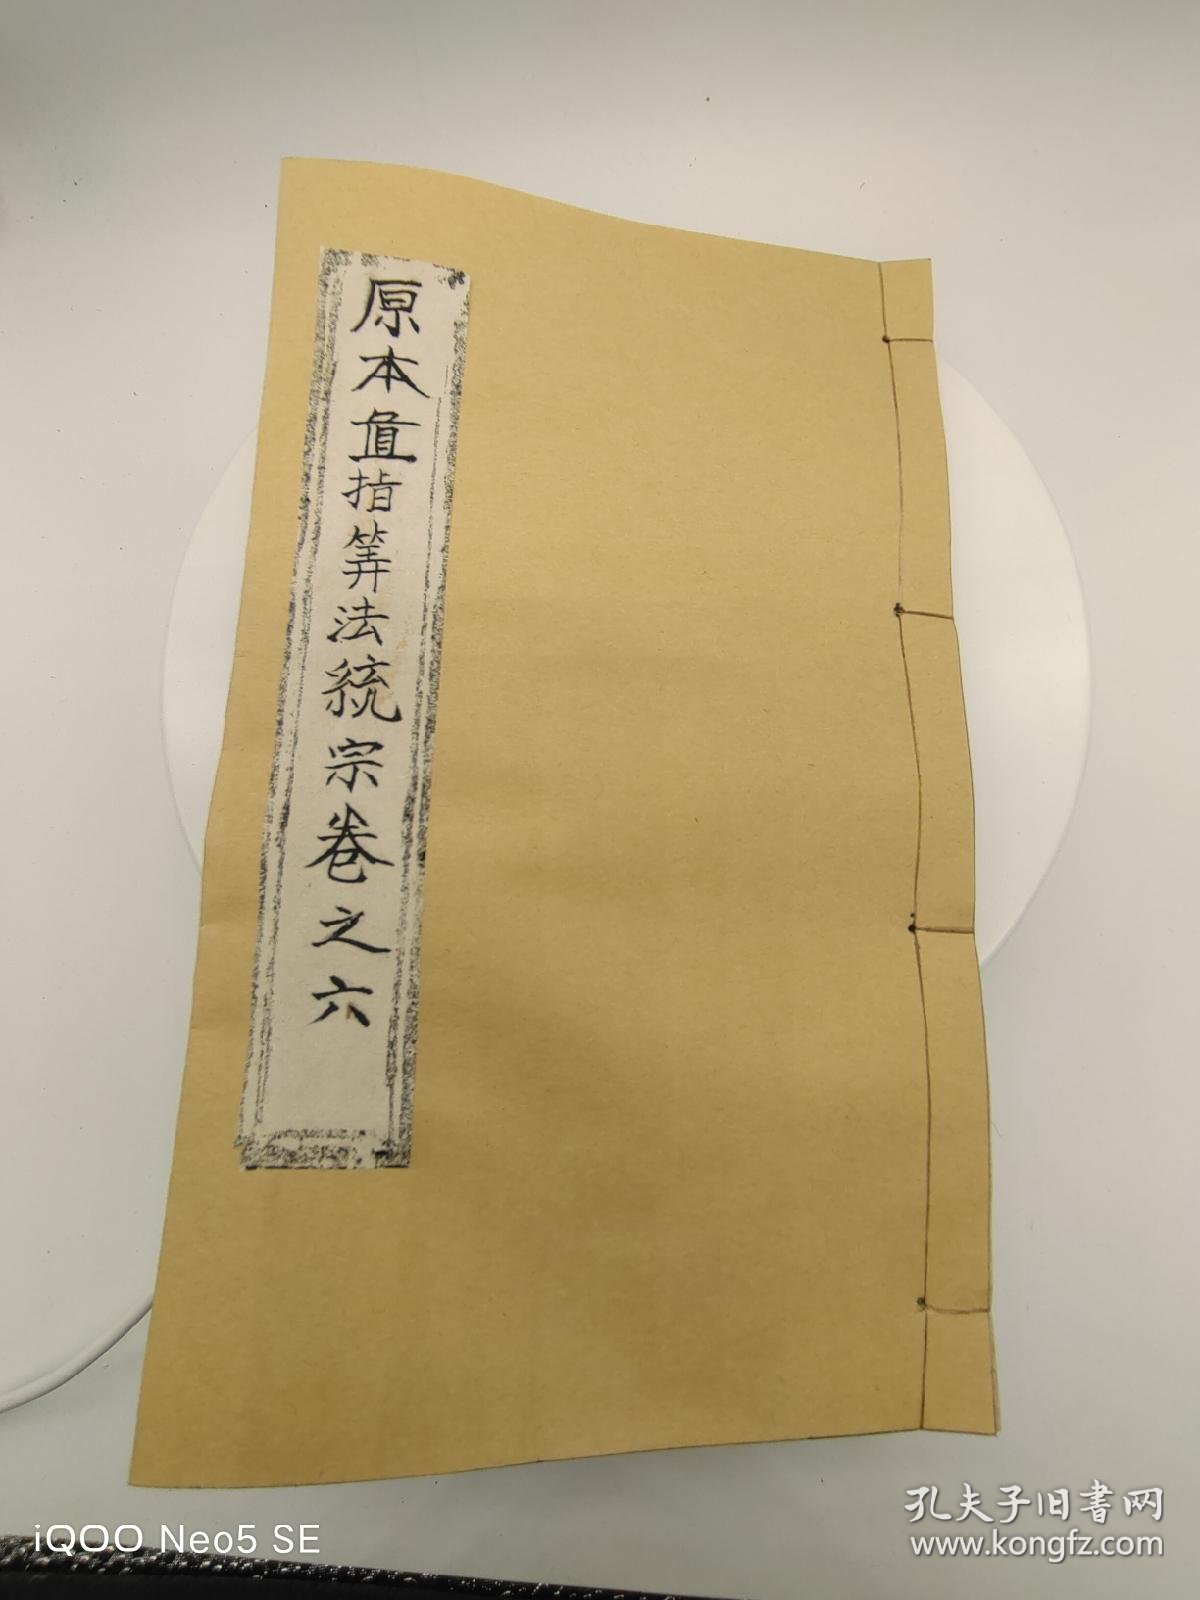 原本直指筭法統宗卷之六
孔夫子旧書网
www.kongfz.com
iQOO Neo5 SE